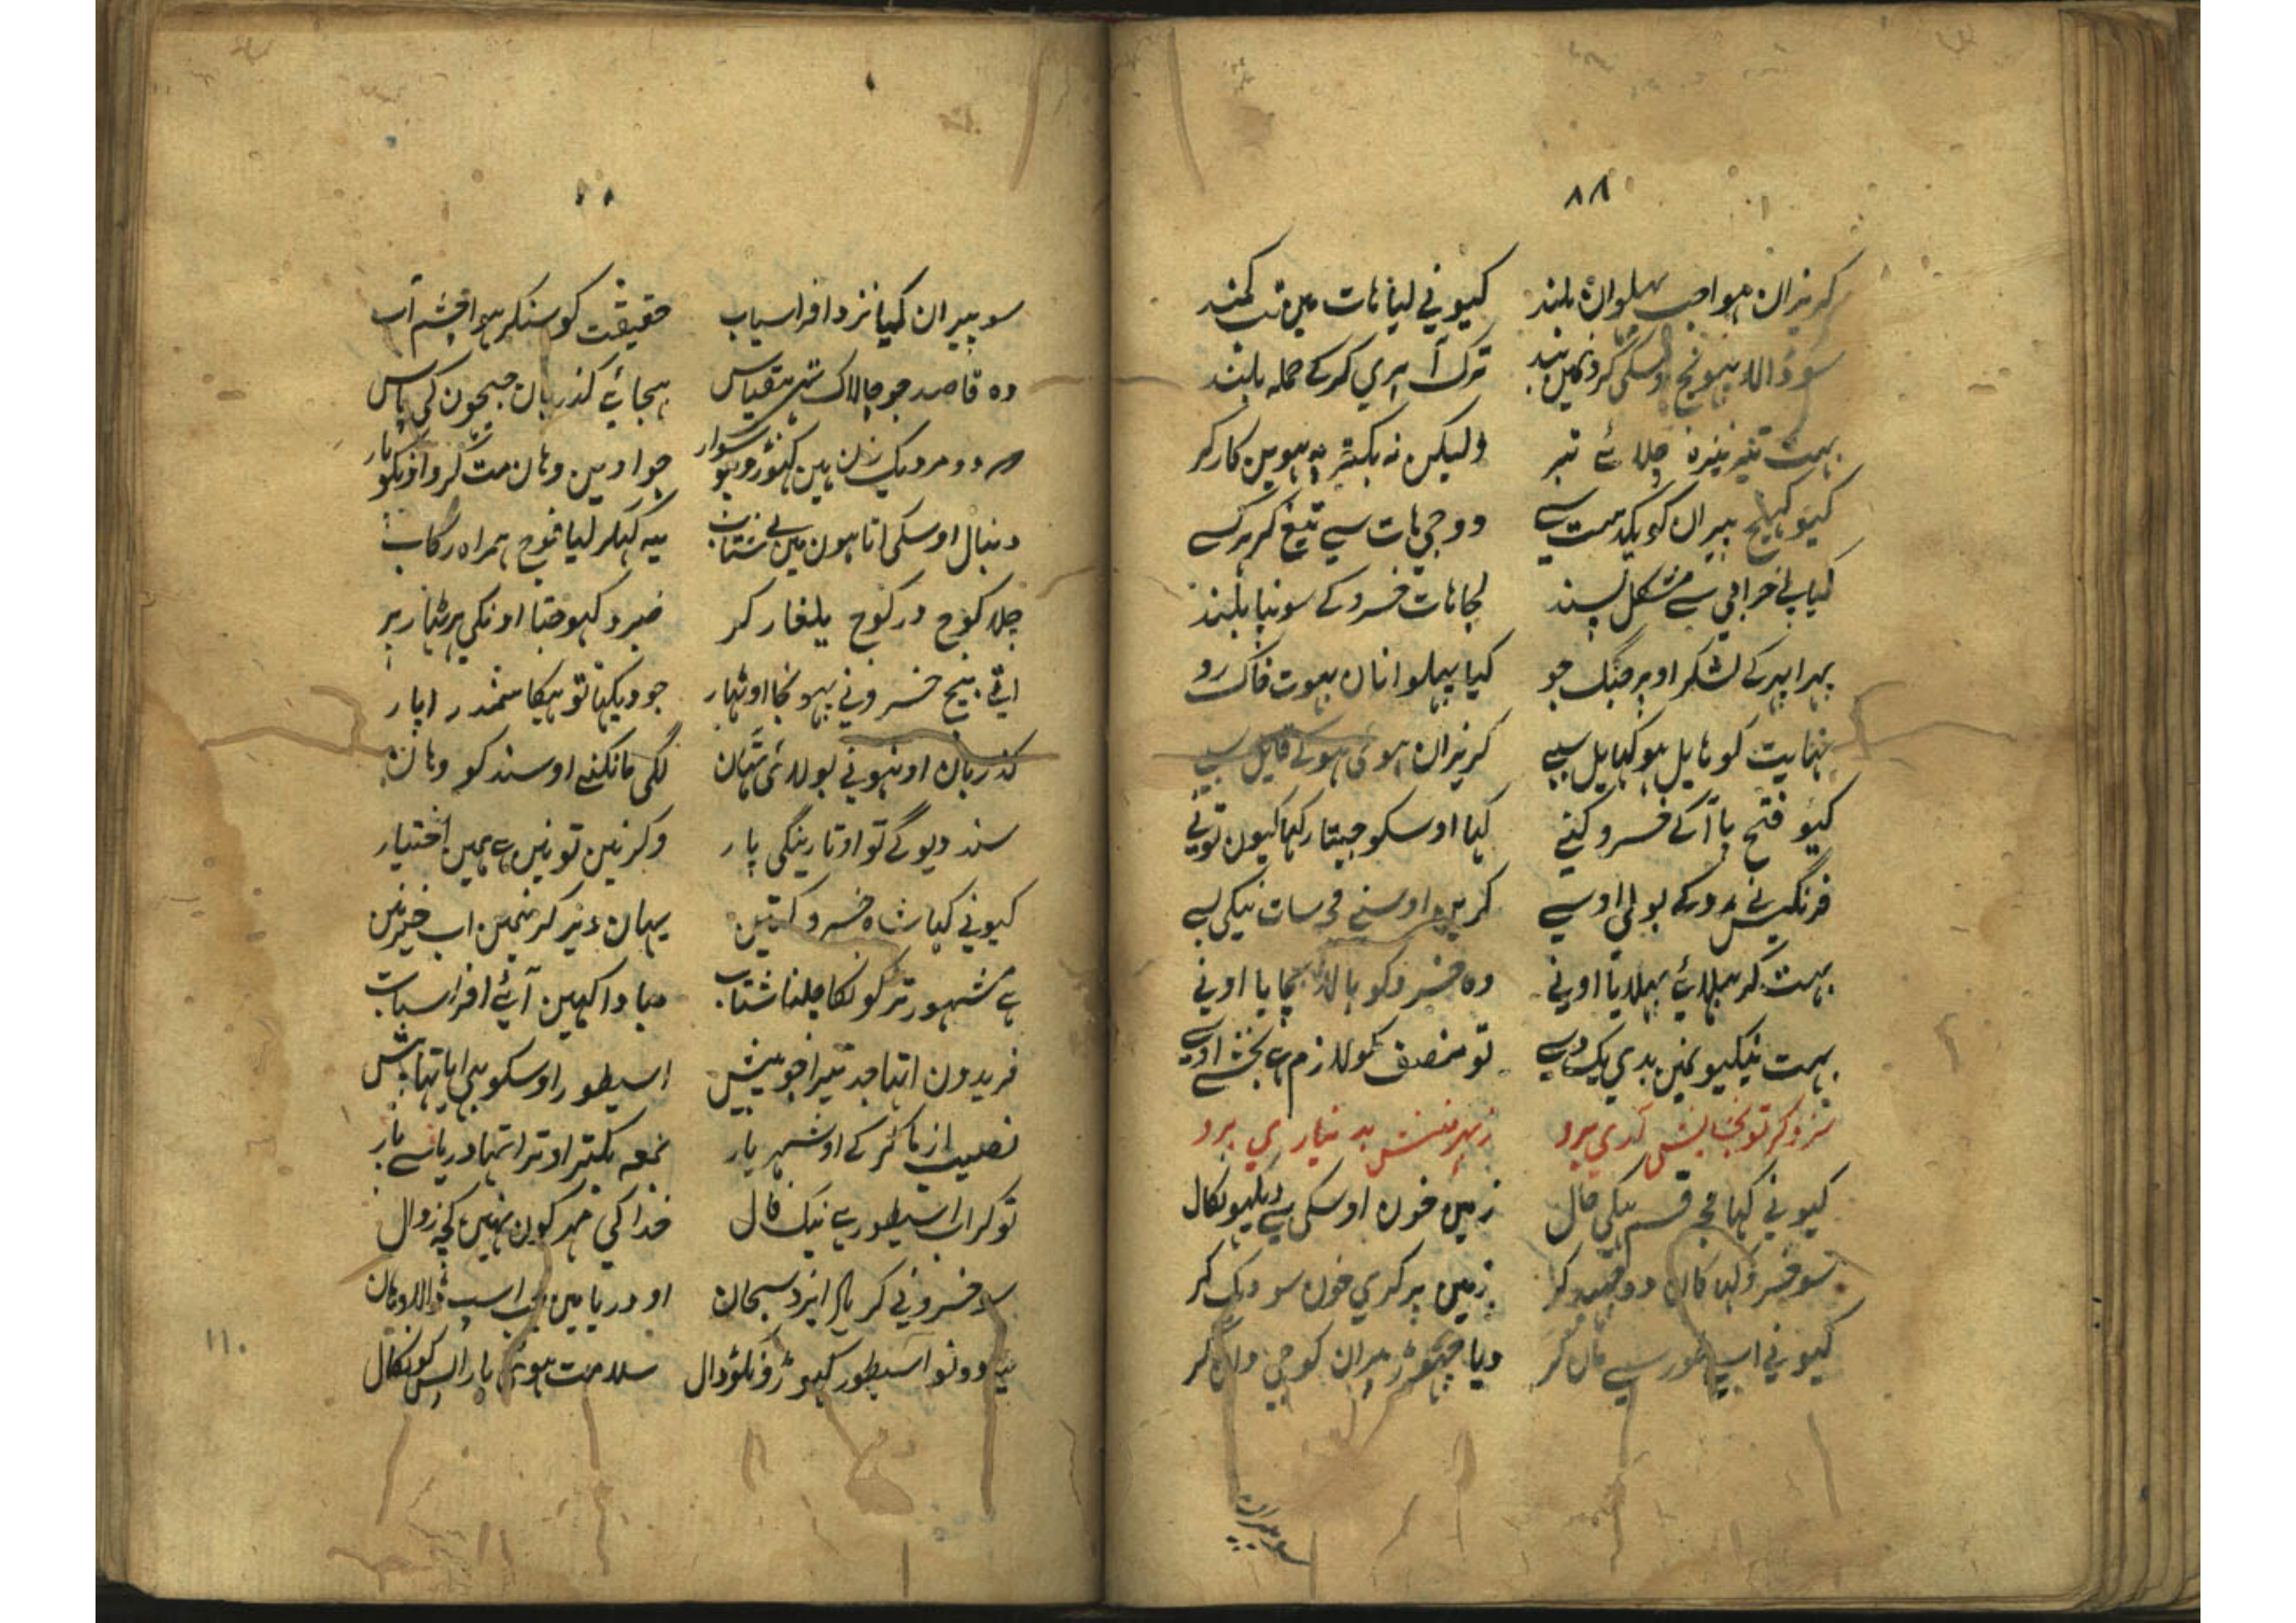 ۸۸
کریزان ہوا جب پہلوان بلند کیو نی لیا ہات مین تب کمند
سو ڈالا پہونچ اوسکی کردن مین بند ترک آ پری کر کے حملہ بلند
بہت تیر نیزہ چلائے تبر ولیکن نہ بکتر پہ ہوین کارکر
کیو پیران کو یک سمت سے دو جی ہات سے تیغ کر
کیا خرابی سے مشکل پسند لجا ہات خسرو کے سونپا بلند
پہرا پہر کے لشکر اوپر جنک جو کیا پہلوانان بہوت خاک رو
نہایت کو ہایل ہو کہایل سبے کریزان ہوی ہو کے قایل سبے
کیو فتح پا آ کے خسرو کنے کہا اوسکو جیتا رکہا کیون تونے
فرنکیس نے رو کے بولی اوسے کری اوسنے مجہ سات نیکی
بہت کر بہلائے بہلایا اونے وہ خسرو کو پالا بچایا اونے
بہت نیکیو نمین بدی یک دسے تو منصف کو لازم ہے بخشے اوسے
زہر منش بد نیاری برد
کیو نی کہا مجہ قسم ہیکی حال زمین خون اوسکی سے دیکہو نکال
سو خسرو کہا کان دو چہید کر زمین پر کری خون سو ویک کر
کیو نی اسیطور سے مان کر دیا چہوڑ پیران کو جی دان کر
سو پیران
سو پیران کیا نزد افراسیاب حقیقت کو سنکر ہوا خشم آب
وہ قاصد جو چالاک تہی بیقیاس بہجائے کذربان جیحون کی پاس
دو مرد یک زن ہین کہوڑو پو سوار جو اوین وہان مت کرو اونکو پار
دنبال اوسکی اتا ہون مین بی شتاب یہ کہکر لیا فوج ہمراہ رکاب
چلا کوچ در کوچ یلغار کر خبر کہوجتا اونکی ہر ٹہار پر
اتے بیچ خسرو نے پہونچا او ٹہار جو دیکہا تو ہیکا سمندر اپار
کذربان او نہونے بولائی تہان لکی مانکنے او سند کو وہان
سند دیو کے تو اوتارینکی پار وکر نین تو نین ہے ہمین اختیار
کیو نی کہا شاہ خسرو کتین یہان دیر کر نیمین اب خیر نین
ہے مشہور تر کو نکا چلنا شتاب مبادا کہین آئے افراسیاب
فریدون اتہا جد تیرا جو پیش اسیطور اوسکو بہی ایا تہا پیش
نصیب ازما کر کے او شہریار بکتر اوترا تہا دریا سے پار
تو کر اب اسیطور ہے نیک فال خدا کی مہر کون نہین کچہ زوال
خسرو نے کر یاد ایزد سبحان او دریا مین جب اسپ ڈالا وہان
دونو اسیطور کہوڑو نکو ڈال سلامت ہوی پار اپس کو نکال
۱۱۰